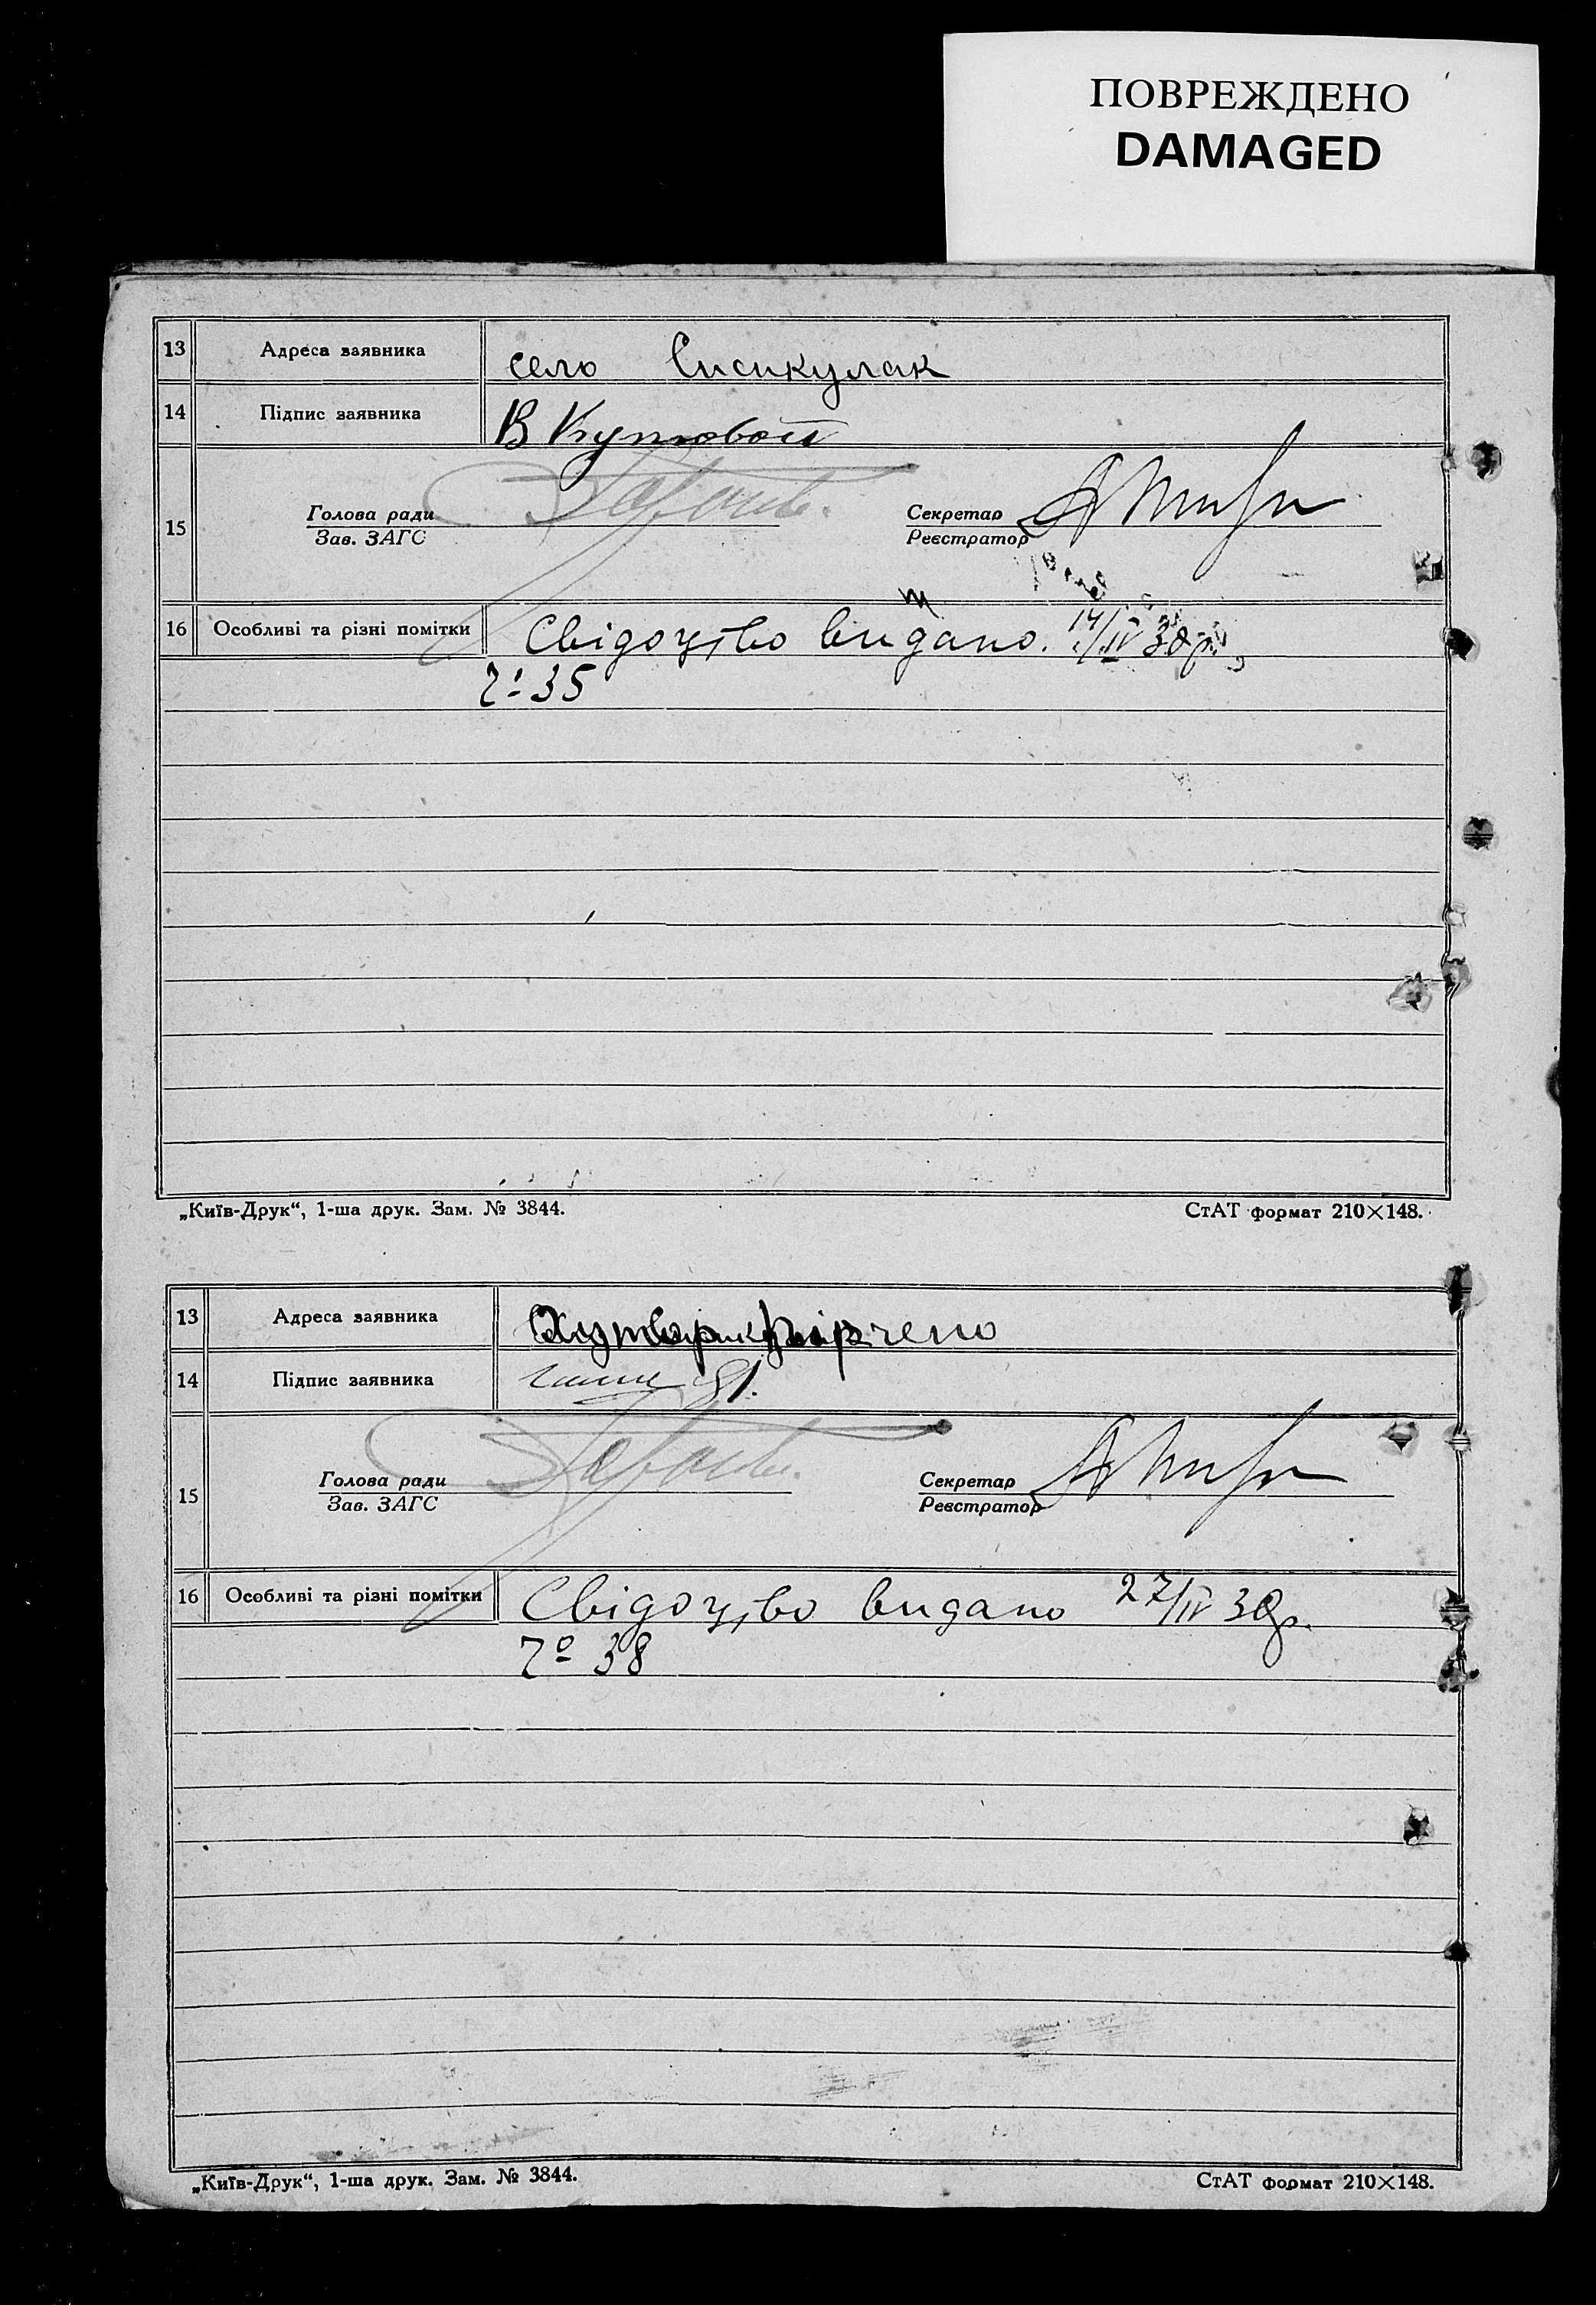 ПОВРЕЖДЕНО
DAMAGED
13 Адреса заявника село
14 Підпис заявника В Кутовой
15 Голова ради Секретар
Зав. ЗАГС Реєстратор
16 Особливі та різні помітки Свідоцтво видано. 14/IV 38р.
№ 35
„Київ-Друк“, 1-ша друк. Зам. № 3844. СтАТ формат 210×148.
13 Адреса заявника
14 Підпис заявника
15 Голова ради Секретар
Зав. ЗАГС Реєстратор
16 Особливі та різні помітки Свідоцтво видано 27/IV 38р.
№ 38
„Київ-Друк“, 1-ша друк. Зам. № 3844. СтАТ формат 210×148.